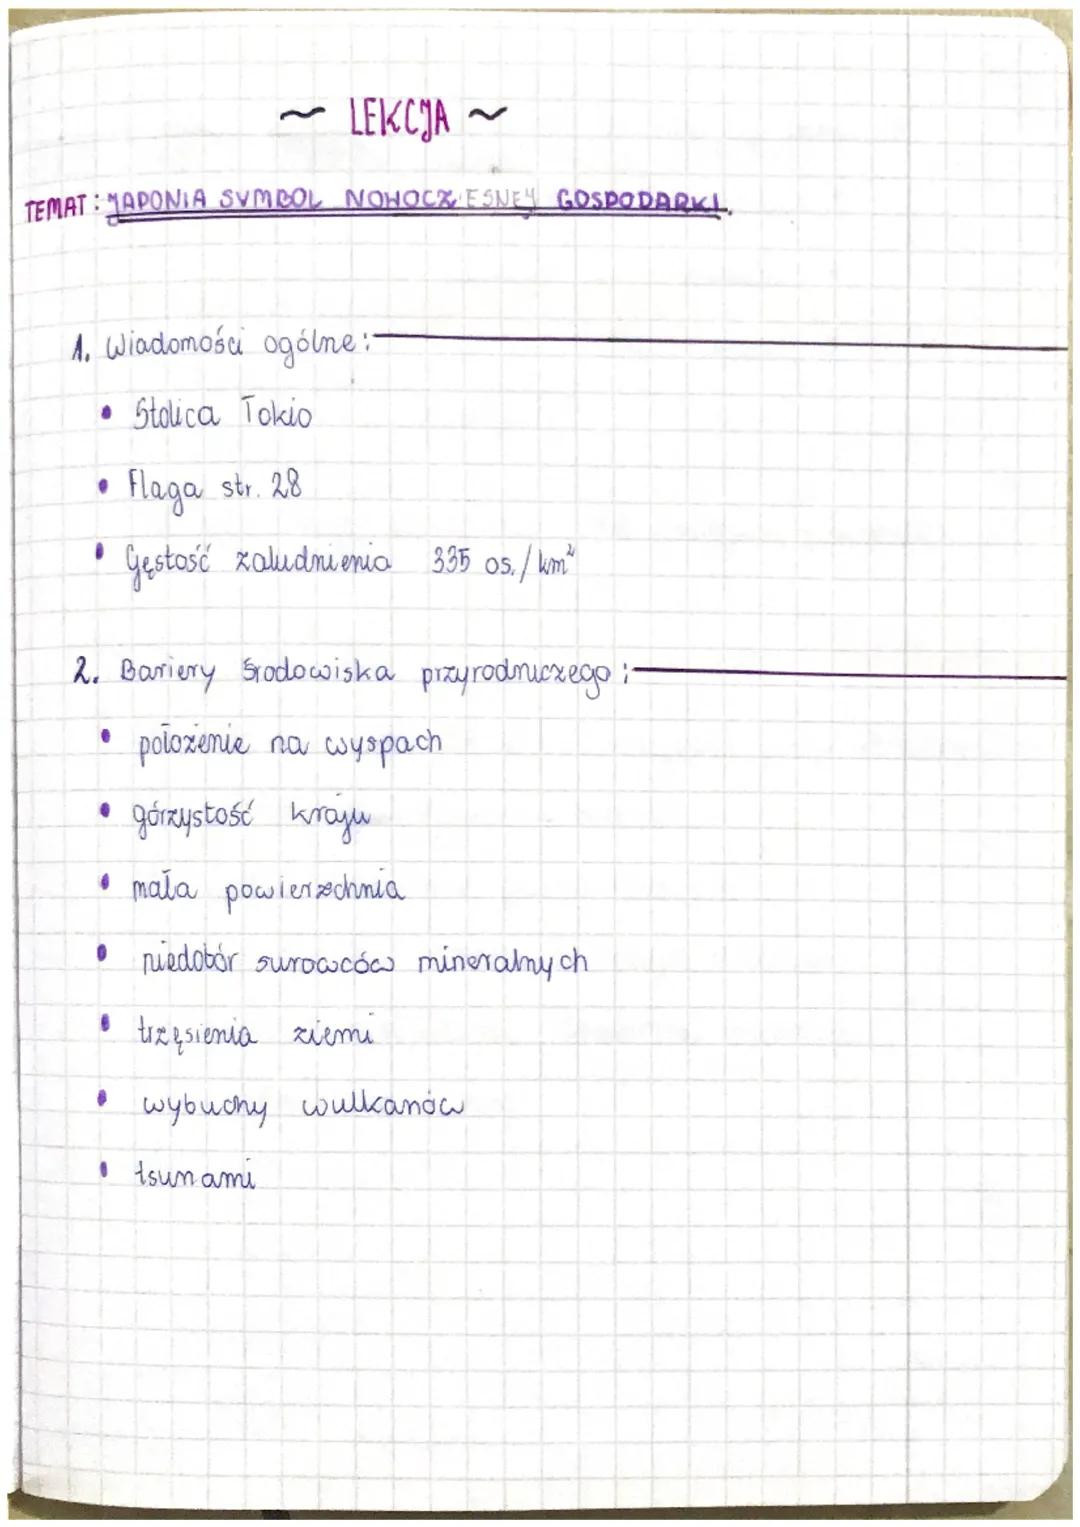 ~ LEKCJA ~
TEMAT: JAPONIA SYMBOL NOWOCZESNEJ GOSPODARKI.
1. Wiadomości ogólne:
• Stolica Tokio
• Flaga str. 28
• Gęstość zaludnienia 335 os./km²
2. Bariery środowiska przyrodniczego:
• położenie na wyspach
• górzystość kraju
• mała powierzchnia
• niedobór surowców mineralnych
• trzęsienia ziemi
• wybuchy wulkanów
• tsunami